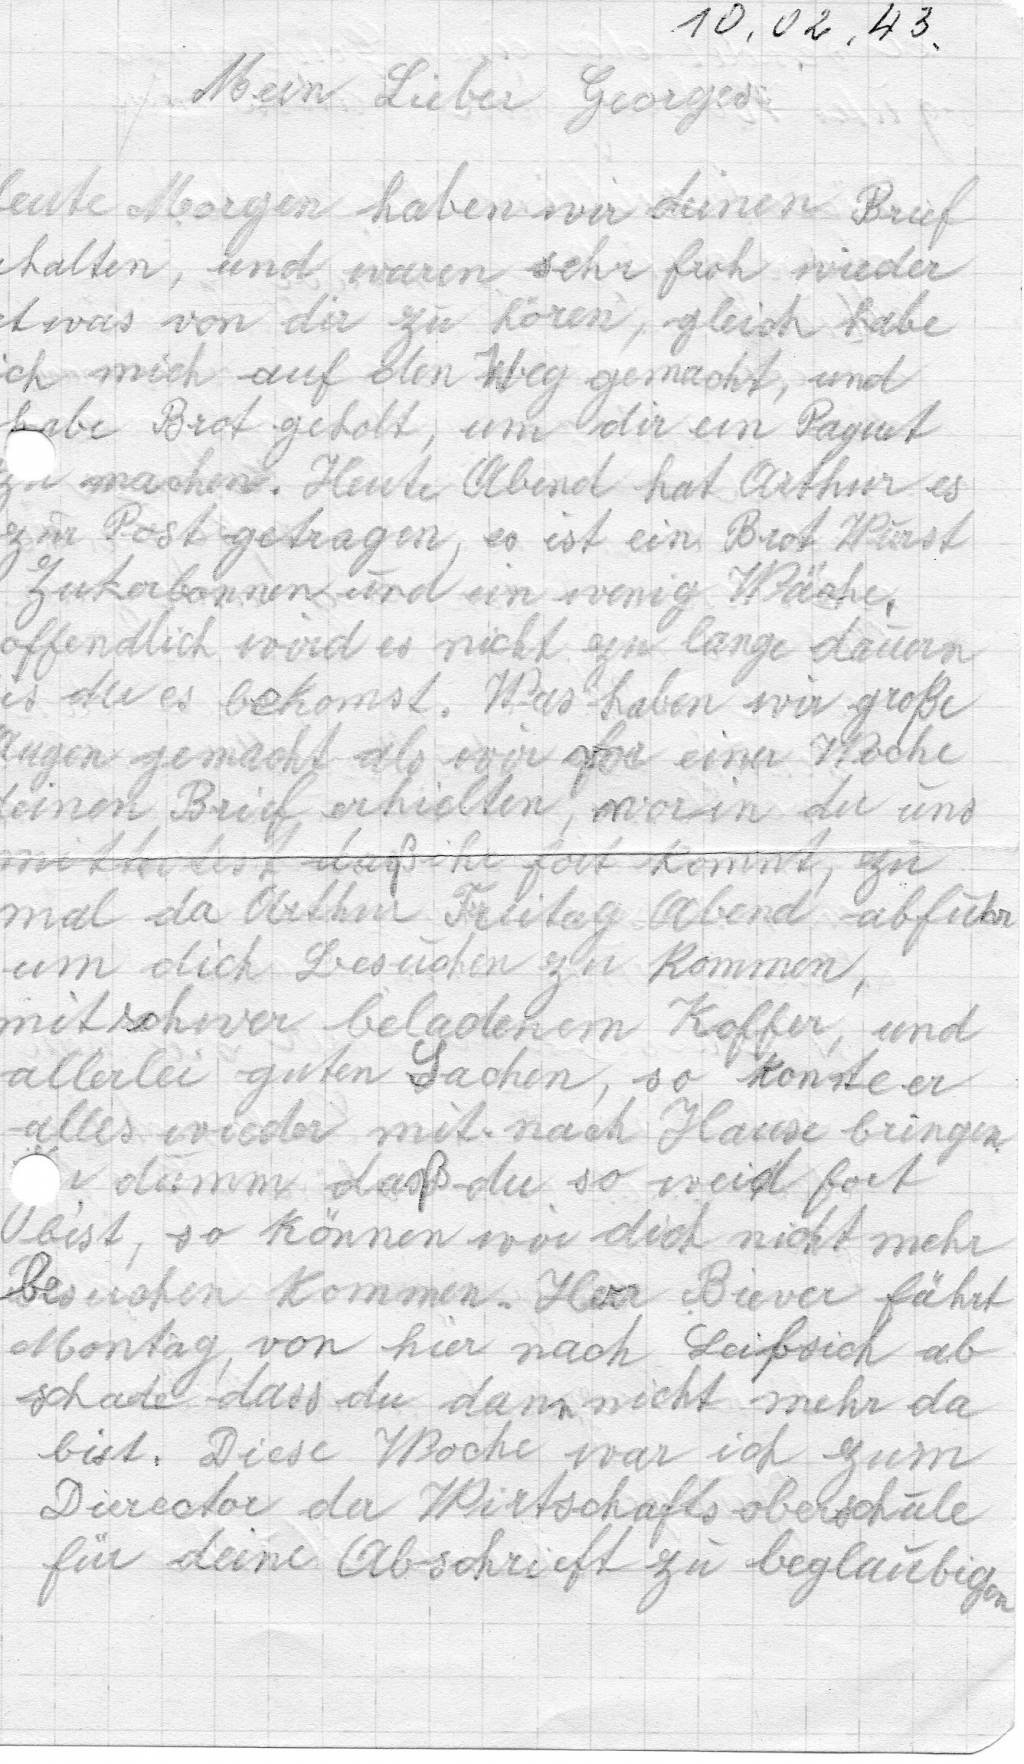 10.02.43.
Mein Lieber Georges
eute Morgen haben wir deinen Brief
halten, und waren sehr froh wieder
etwas von dir zu hören, gleich habe
ich mich auf den Weg gemacht, und
habe Brot geholt, um dir ein Paquet
zu machen. Heute Abend hat Arthur es
zur Post getragen, es ist ein Brot Wurst
Zukerbonnen und ein wenig Wäche,
offendlich wird es nicht zu lange dauern
is du es bekomst. Was haben wir große
Augen gemacht als wir for einer Woche
deinen Brief erhielten, worin du uns
daß ihr fort kommt, zu
mal da Arthur Freitag Abend abfuhr
um dich besuchen zu kommen,
mit schwer beladenem Koffer, und
allerlei guten Sachen, so konnte er
alles wieder mit nach Hause bringen.
dumm daß du so weid fort
bist, so können wir dich nicht mehr
Besuchen kommen. Herr Biever fährt
Montag, von hier nach Leibsich ab
schade dass du dann nicht mehr da
bist. Diese Woche war ich zum
Director der Wirtschaftsoberschule
für deine Abschrieft zu beglaubigen